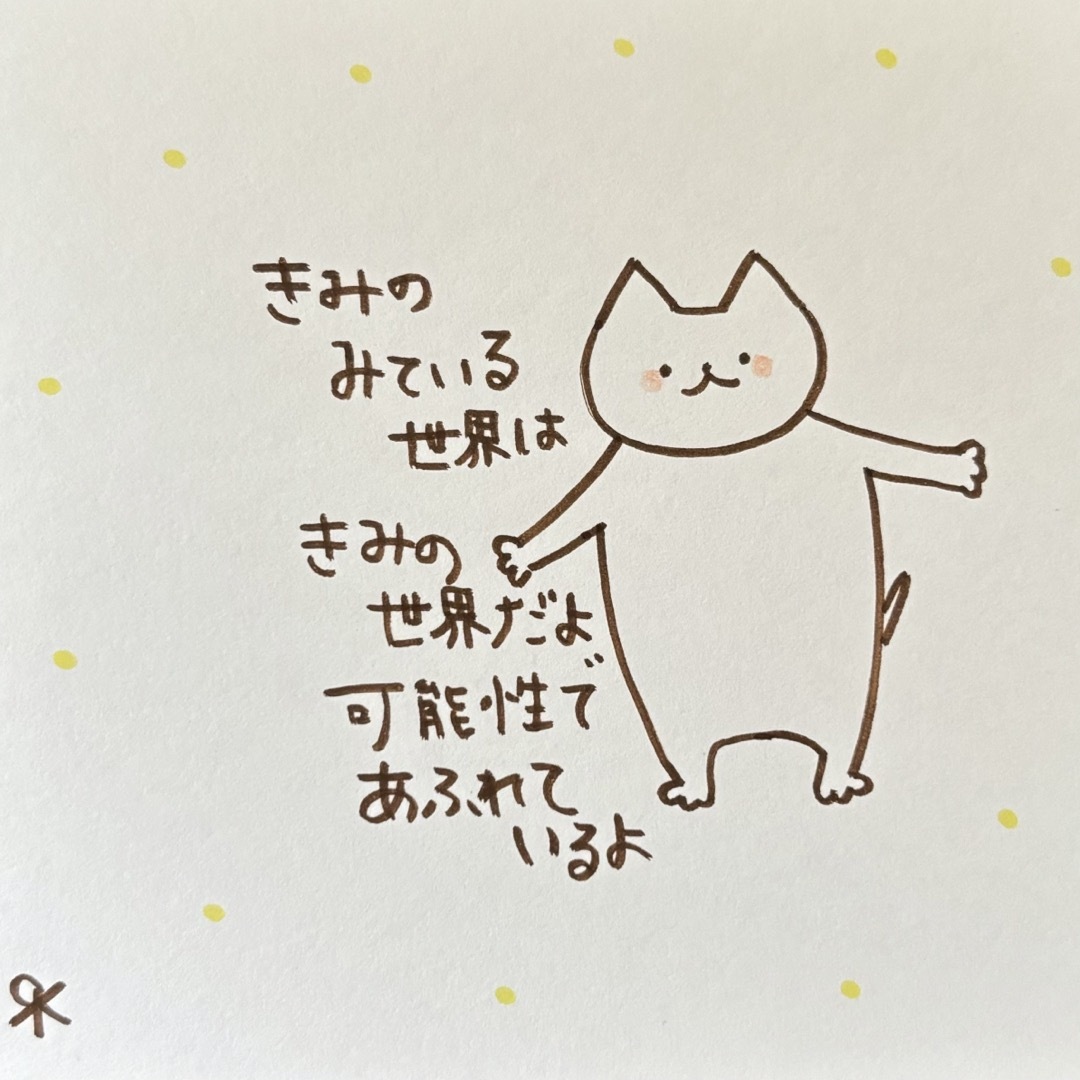 きみの
みている
世界は
きみの
世界だよ
可能性で
あふれて
いるよ